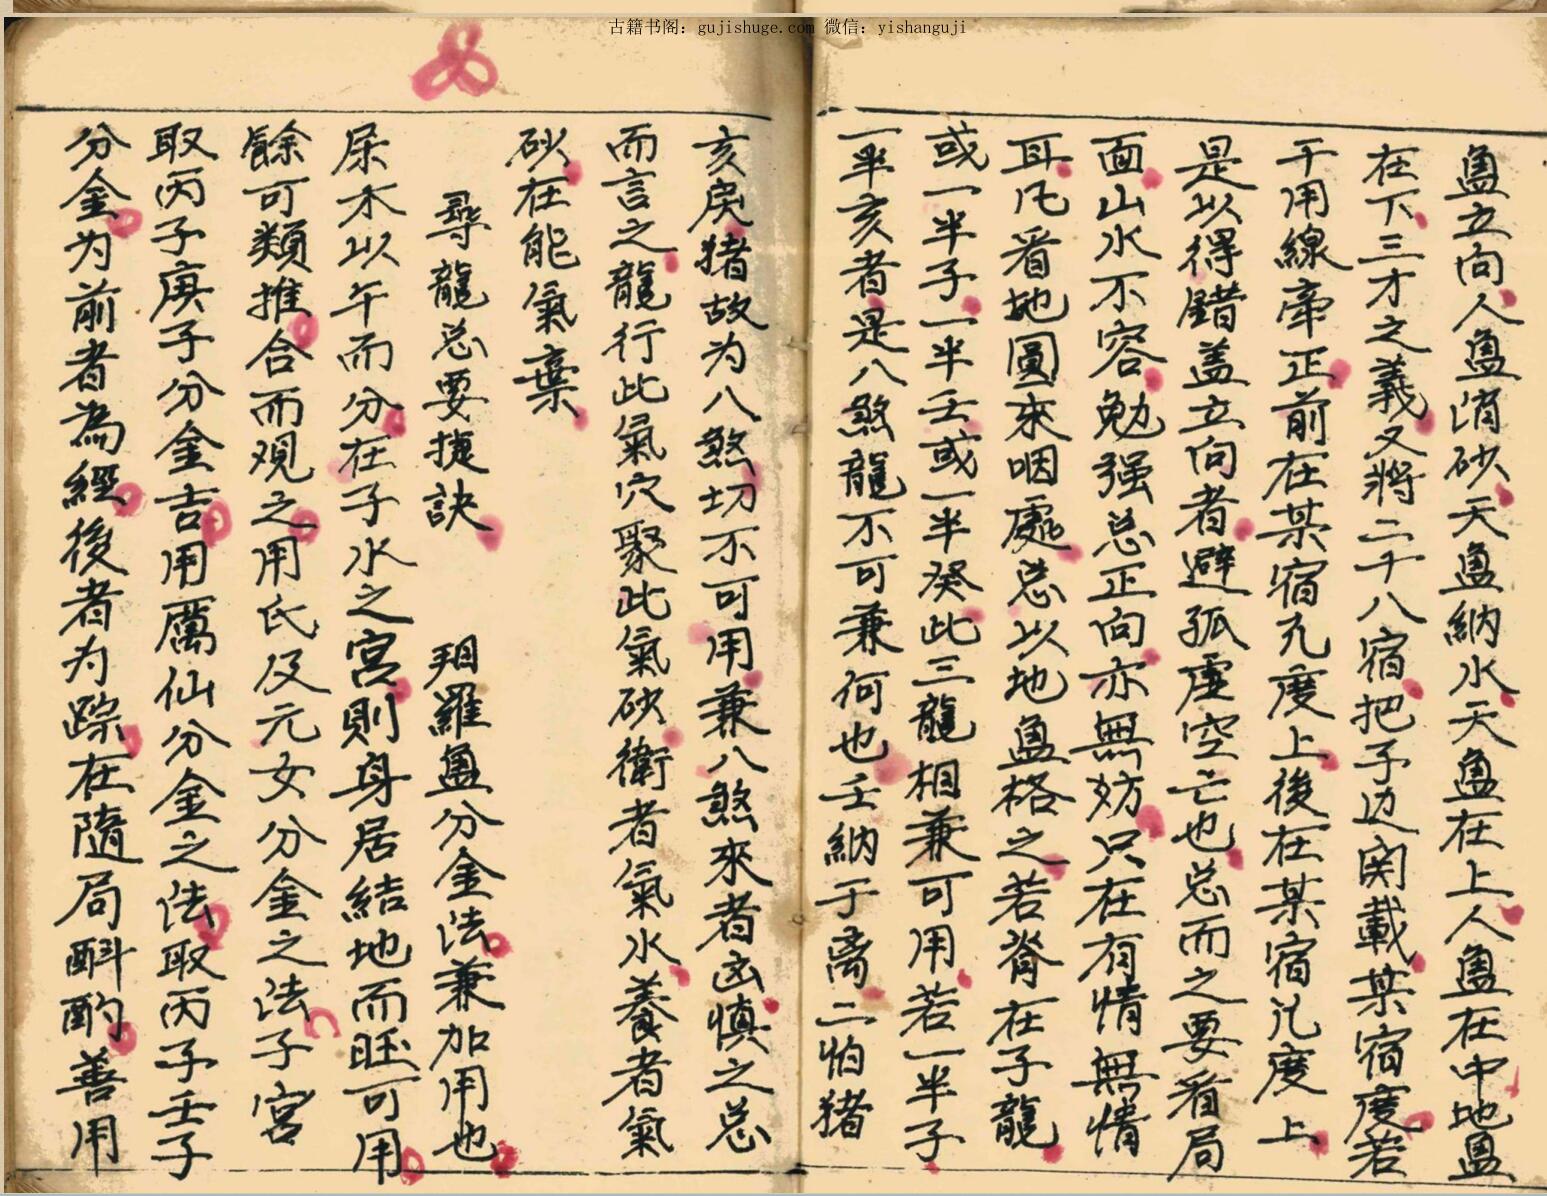 古籍书阁：gujishuge.com 微信：yishanguji
盤立向人盤消砂天盤納水天盤在上人盤在中地盤
在下三才之義又將二十八宿把子边関載某宿度若
干用線牽正前在某宿九度上後在某宿几度上
是以得錯盖立向者避孤虚空亡也总而之要看局
面山水不容勉强总正向亦無妨只在有情無情
耳凡看地圓來咽處总以地盤格之若脊在子龍
或一半子一半壬或一半癸此三龍相兼可用若一半子
一半亥者是八煞龍不可兼何也壬納于离二怕猪
亥房猪故为八煞切不可用兼八煞來者凶慎之总
而言之龍行此氣穴聚此氣砂衛者氣水養者氣
砂在能氣棄
尋龍总要捷訣 羅盤分金法兼加用也
屎木以午而分在子水之宮則身居結地而旺可用
餘可類推合而观之用氏及元女分金之法子宮
取丙子庚子分金吉用厲仙分金之法取丙子壬子
分金为前者為經後者为踪在隨局斟酌善用